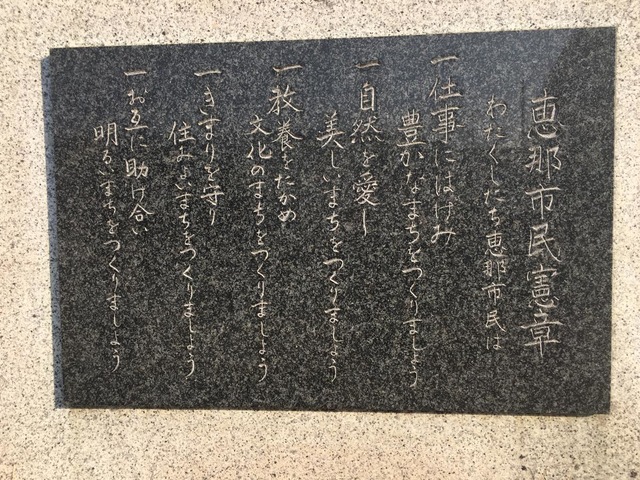 恵那市民憲章
わたくしたち恵那市民は
一仕事にはげみ
豊かなまちをつくりましょう
一自然を愛し
美しいまちをつくりましょう
一教養をたかめ
文化のまちをつくりましょう
一きまりを守り
住みよいまちをつくりましょう
一お互に助け合い
明るいまちをつくりましょう